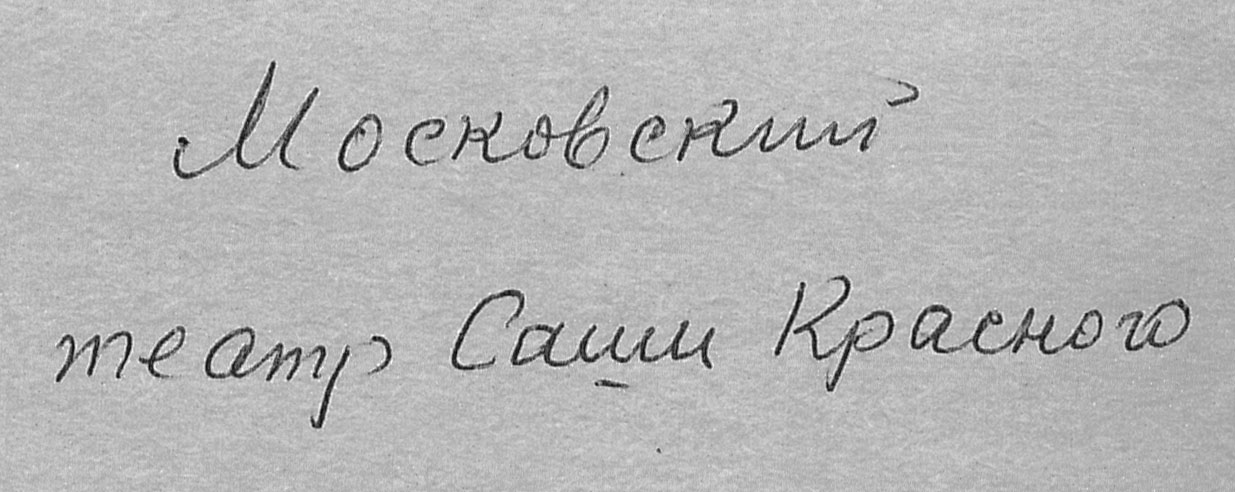 Московский
театр Саши Красного